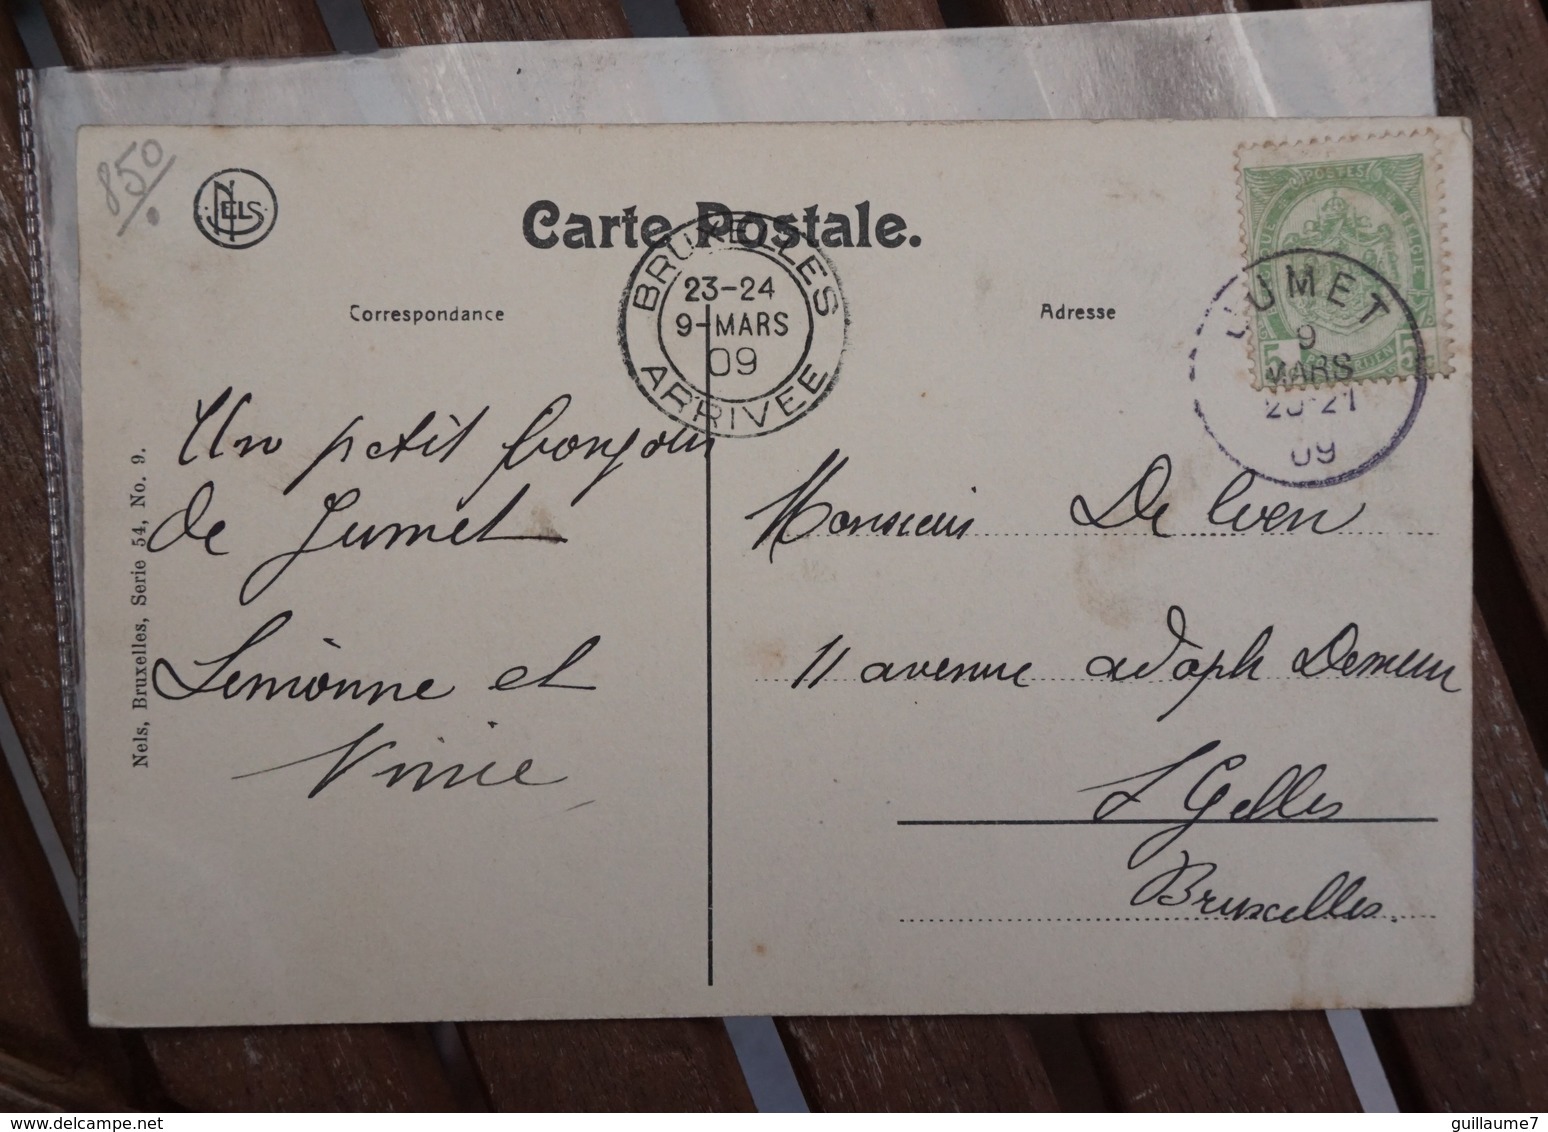 850
NELS
Carte Postale.
BRUXELLES
23-24
9-MARS
09
ARRIVEE
Correspondance
Adresse
POSTES
BELGIQUE
5
5
JUMET
9
MARS
09
Un petit bonjour
de Jumet
Simonne et
Monsieur De
11 avenue adolph Demeur
S Gilles
Bruxelles.
Nels, Bruxelles, Serie 54, No. 9.
guillaume7